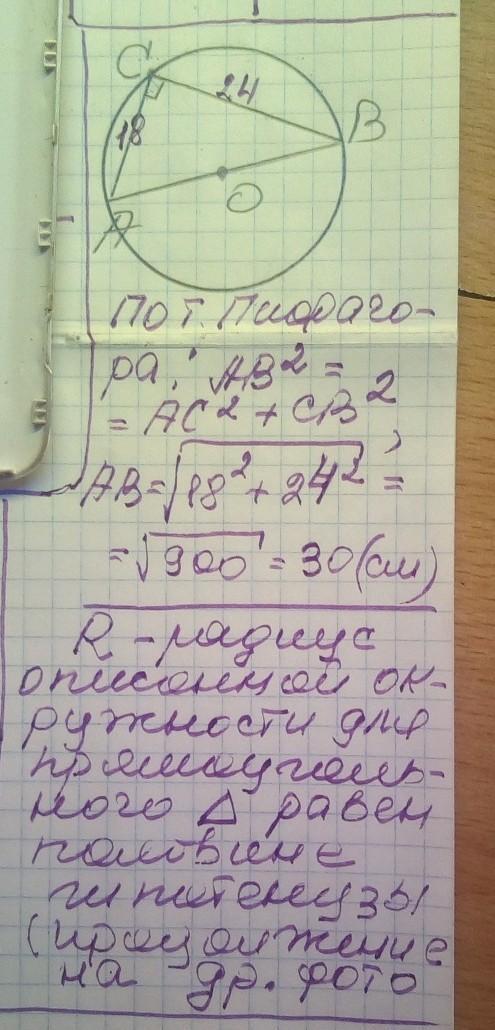 C
24
B
18
O
A
По т. Пифаго-
ра: AB² =
= AC² + CB²,
AB = √18² + 24² =
= √900 = 30 (см)
R - радиус
описанной ок-
ружности для
прямоуголь-
ного Δ равен
половине
гипотенузы
(продолжение
на др. фото